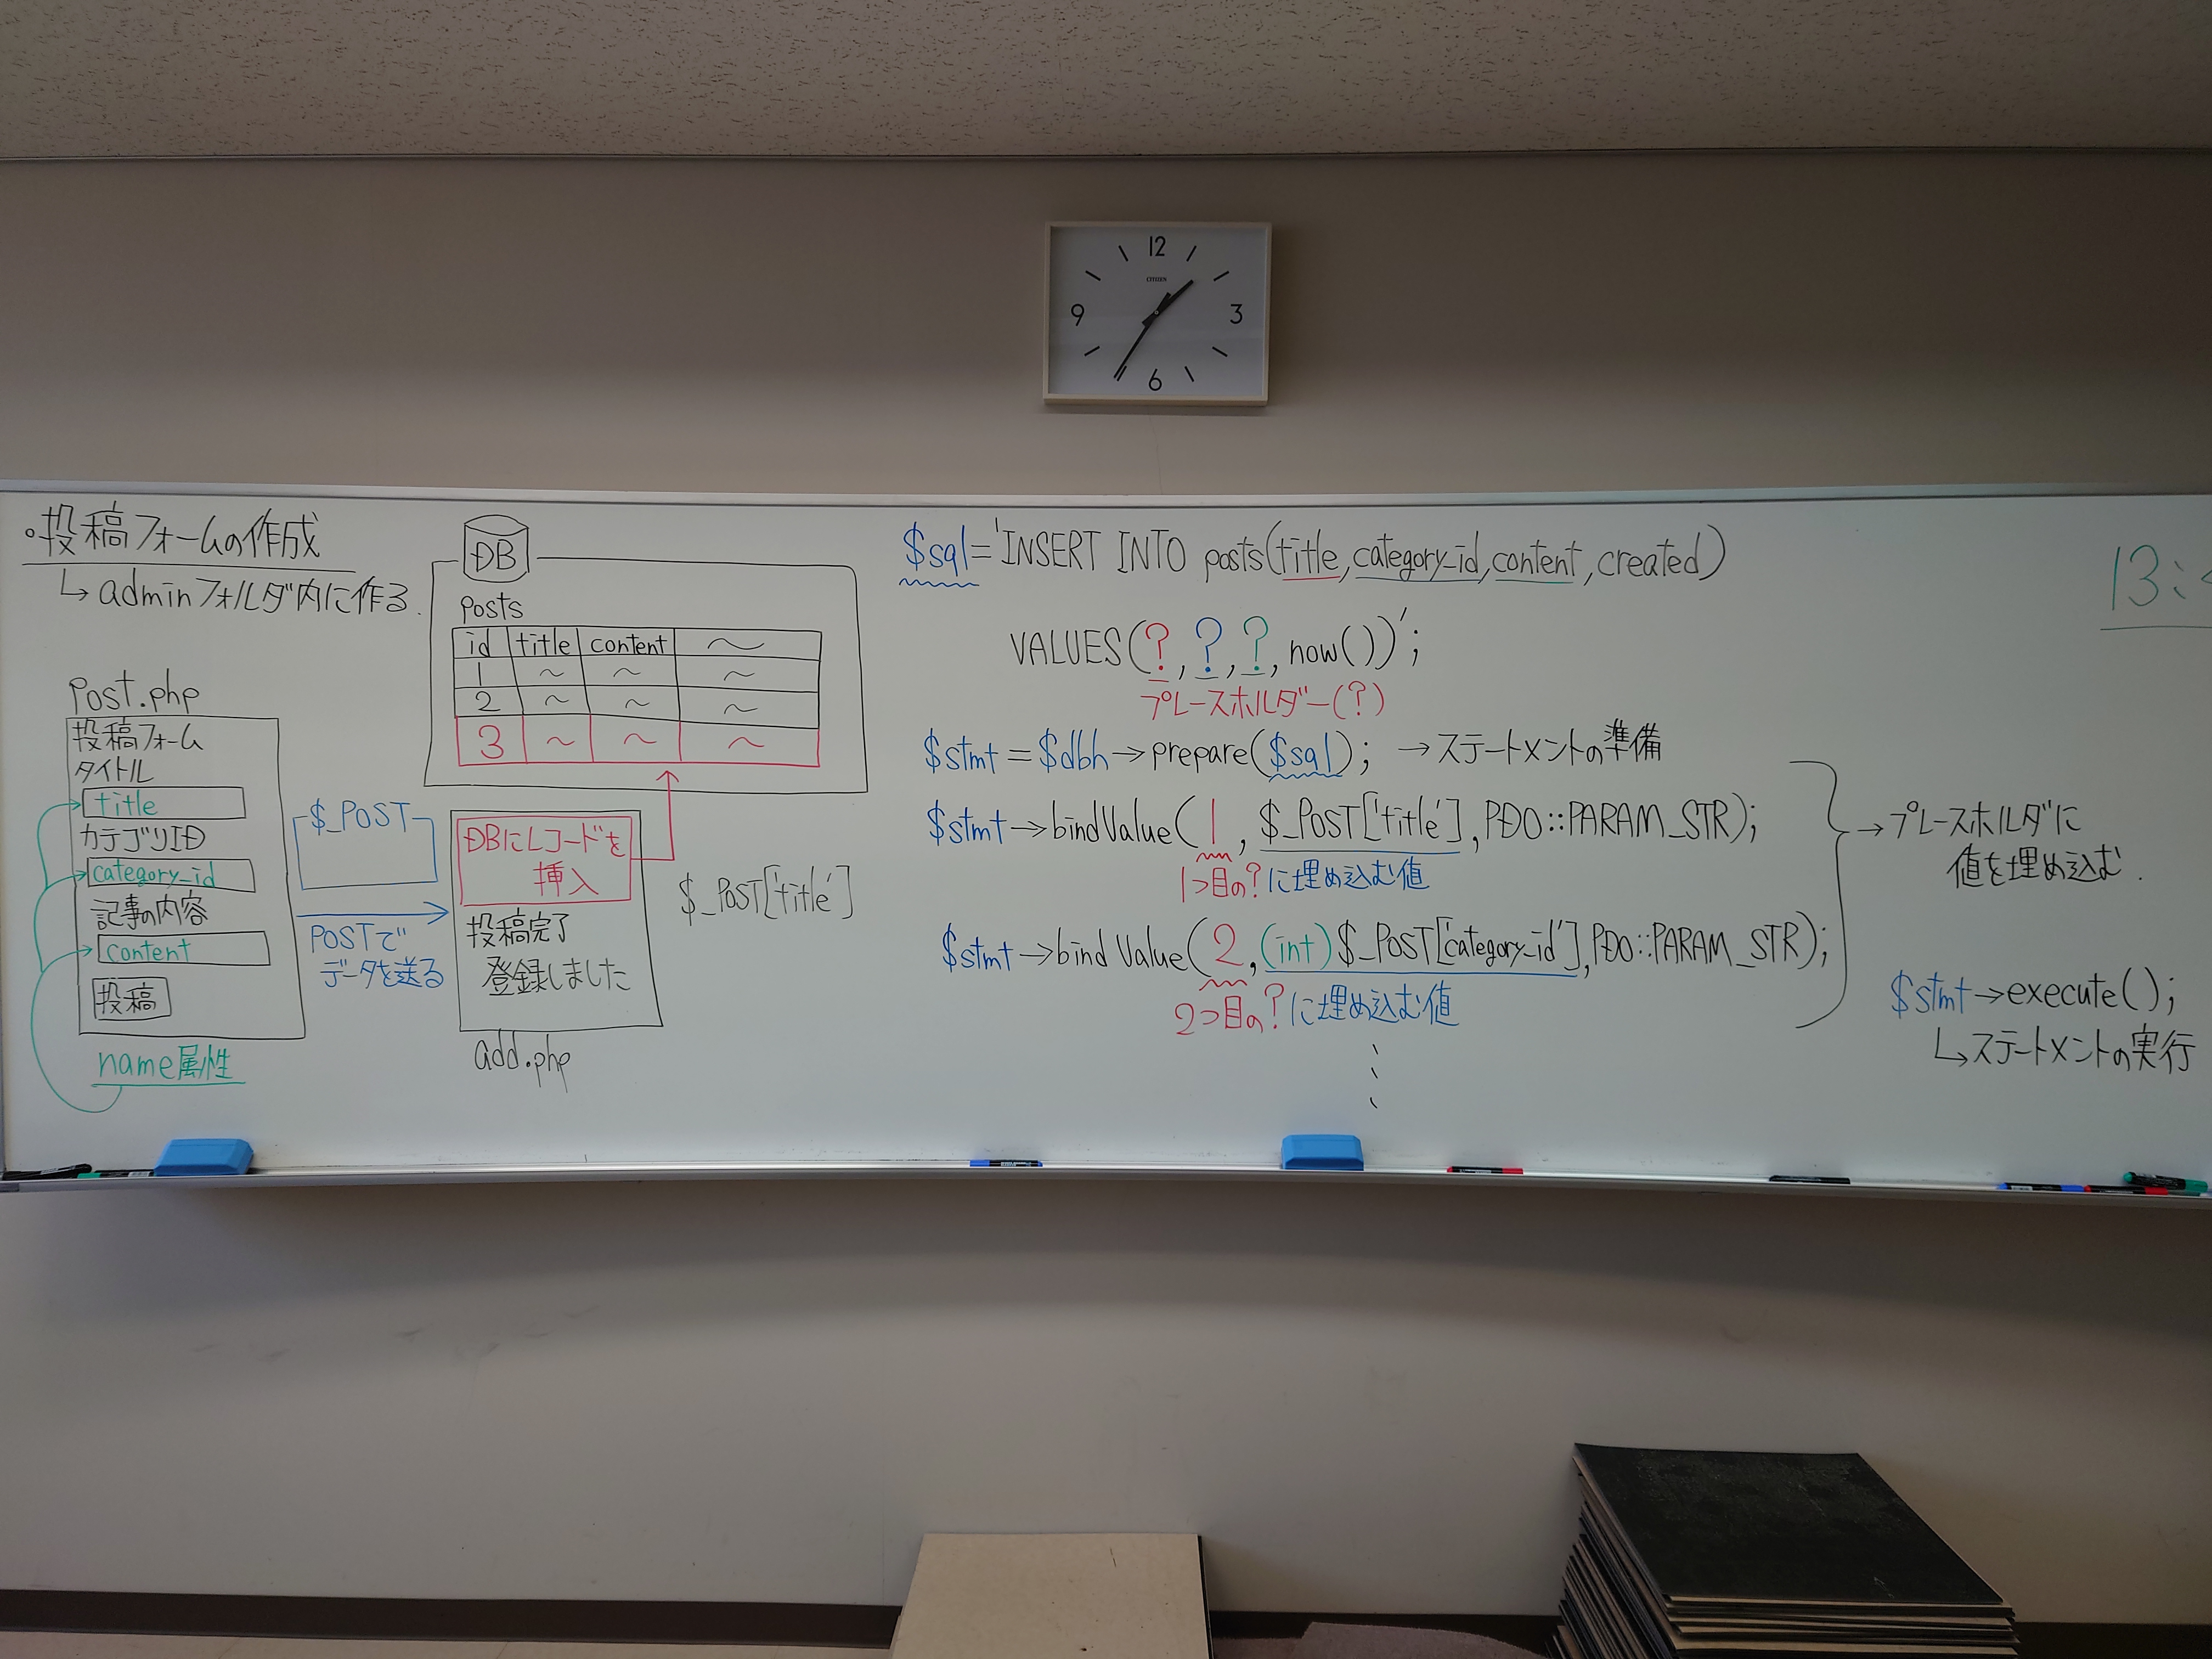 12
CITIZEN
9
3
6
・投稿フォームの作成
↳ adminフォルダ内に作る.
DB
posts
id title content ～
1 ～ ～ ～
2 ～ ～ ～
3 ～ ～ ～
Post.php
投稿フォーム
タイトル
title
カテゴリID
category_id
記事の内容
content
投稿
name属性
$_POST
POSTで
データを送る
DBにレコードを
挿入
投稿完了
登録しました
add.php
$_POST['title']
$sql='INSERT INTO posts(title,category_id,content,created)
VALUES(?,?,?,now())';
プレースホルダー(?)
$stmt=$dbh→prepare($sql); →ステートメントの準備
$stmt→bindValue(1,$_POST['title'],PDO::PARAM_STR);
1つ目の?に埋め込む値
$stmt→bindValue(2,(int)$_POST['category_id'],PDO::PARAM_STR);
2つ目の?に埋め込む値
→プレースホルダに
値を埋め込む.
$stmt→execute();
↳ステートメントの実行
13: